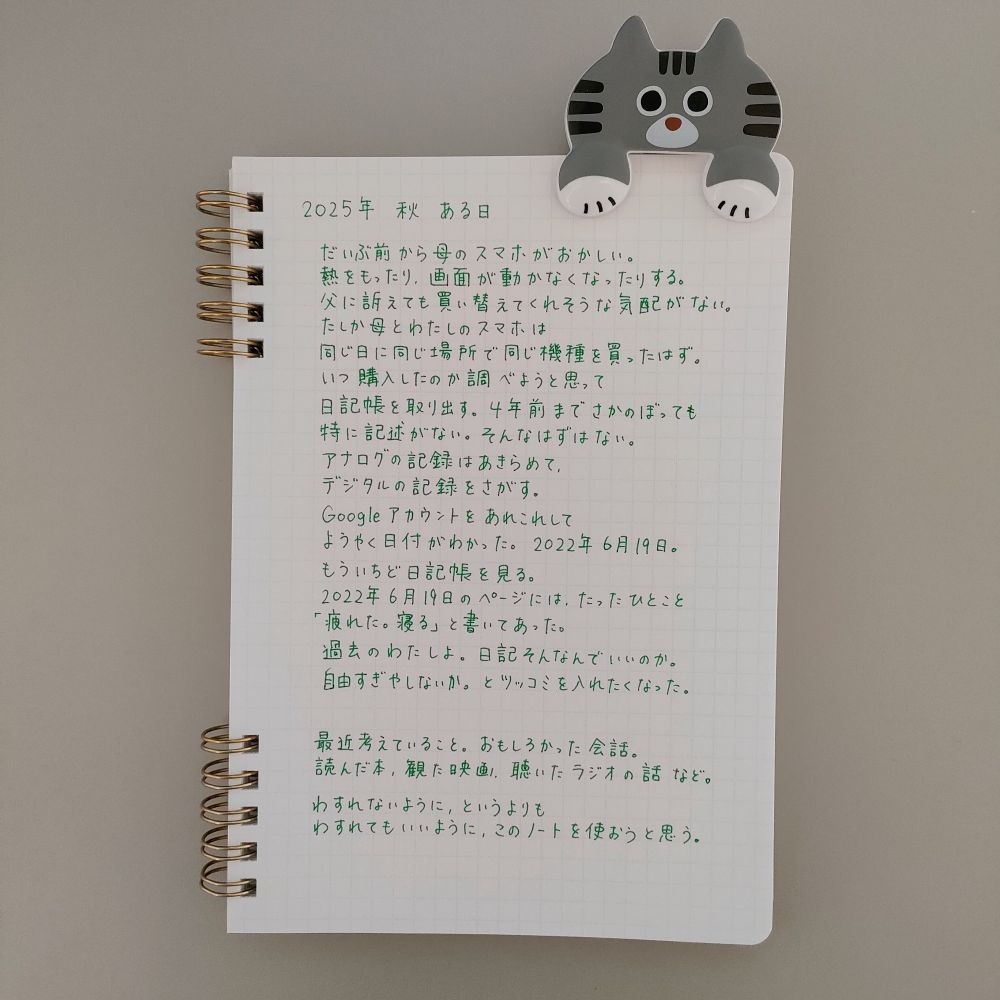 2025年 秋 ある日
だいぶ前から母のスマホがおかしい。
熱をもったり、画面が動かなくなったりする。
父に訴えても買い替えてくれそうな気配がない。
たしか母とわたしのスマホは
同じ日に同じ場所で同じ機種を買ったはず。
いつ購入したのか調べようと思って
日記帳を取り出す。4年前までさかのぼっても
特に記述がない。そんなはずはない。
アナログの記録はあきらめて、
デジタルの記録をさがす。
Googleアカウントをあれこれして
ようやく日付がわかった。2022年6月19日。
もういちど日記帳を見る。
2022年6月19日のページには、たったひとこと
「疲れた。寝る」と書いてあった。
過去のわたしよ。日記そんなんでいいのか。
自由すぎやしないか。とツッコミを入れたくなった。
最近考えていること。おもしろかった会話。
読んだ本、観た映画、聴いたラジオの話など。
わすれないように、というよりも
わすれてもいいように、このノートを使おうと思う。